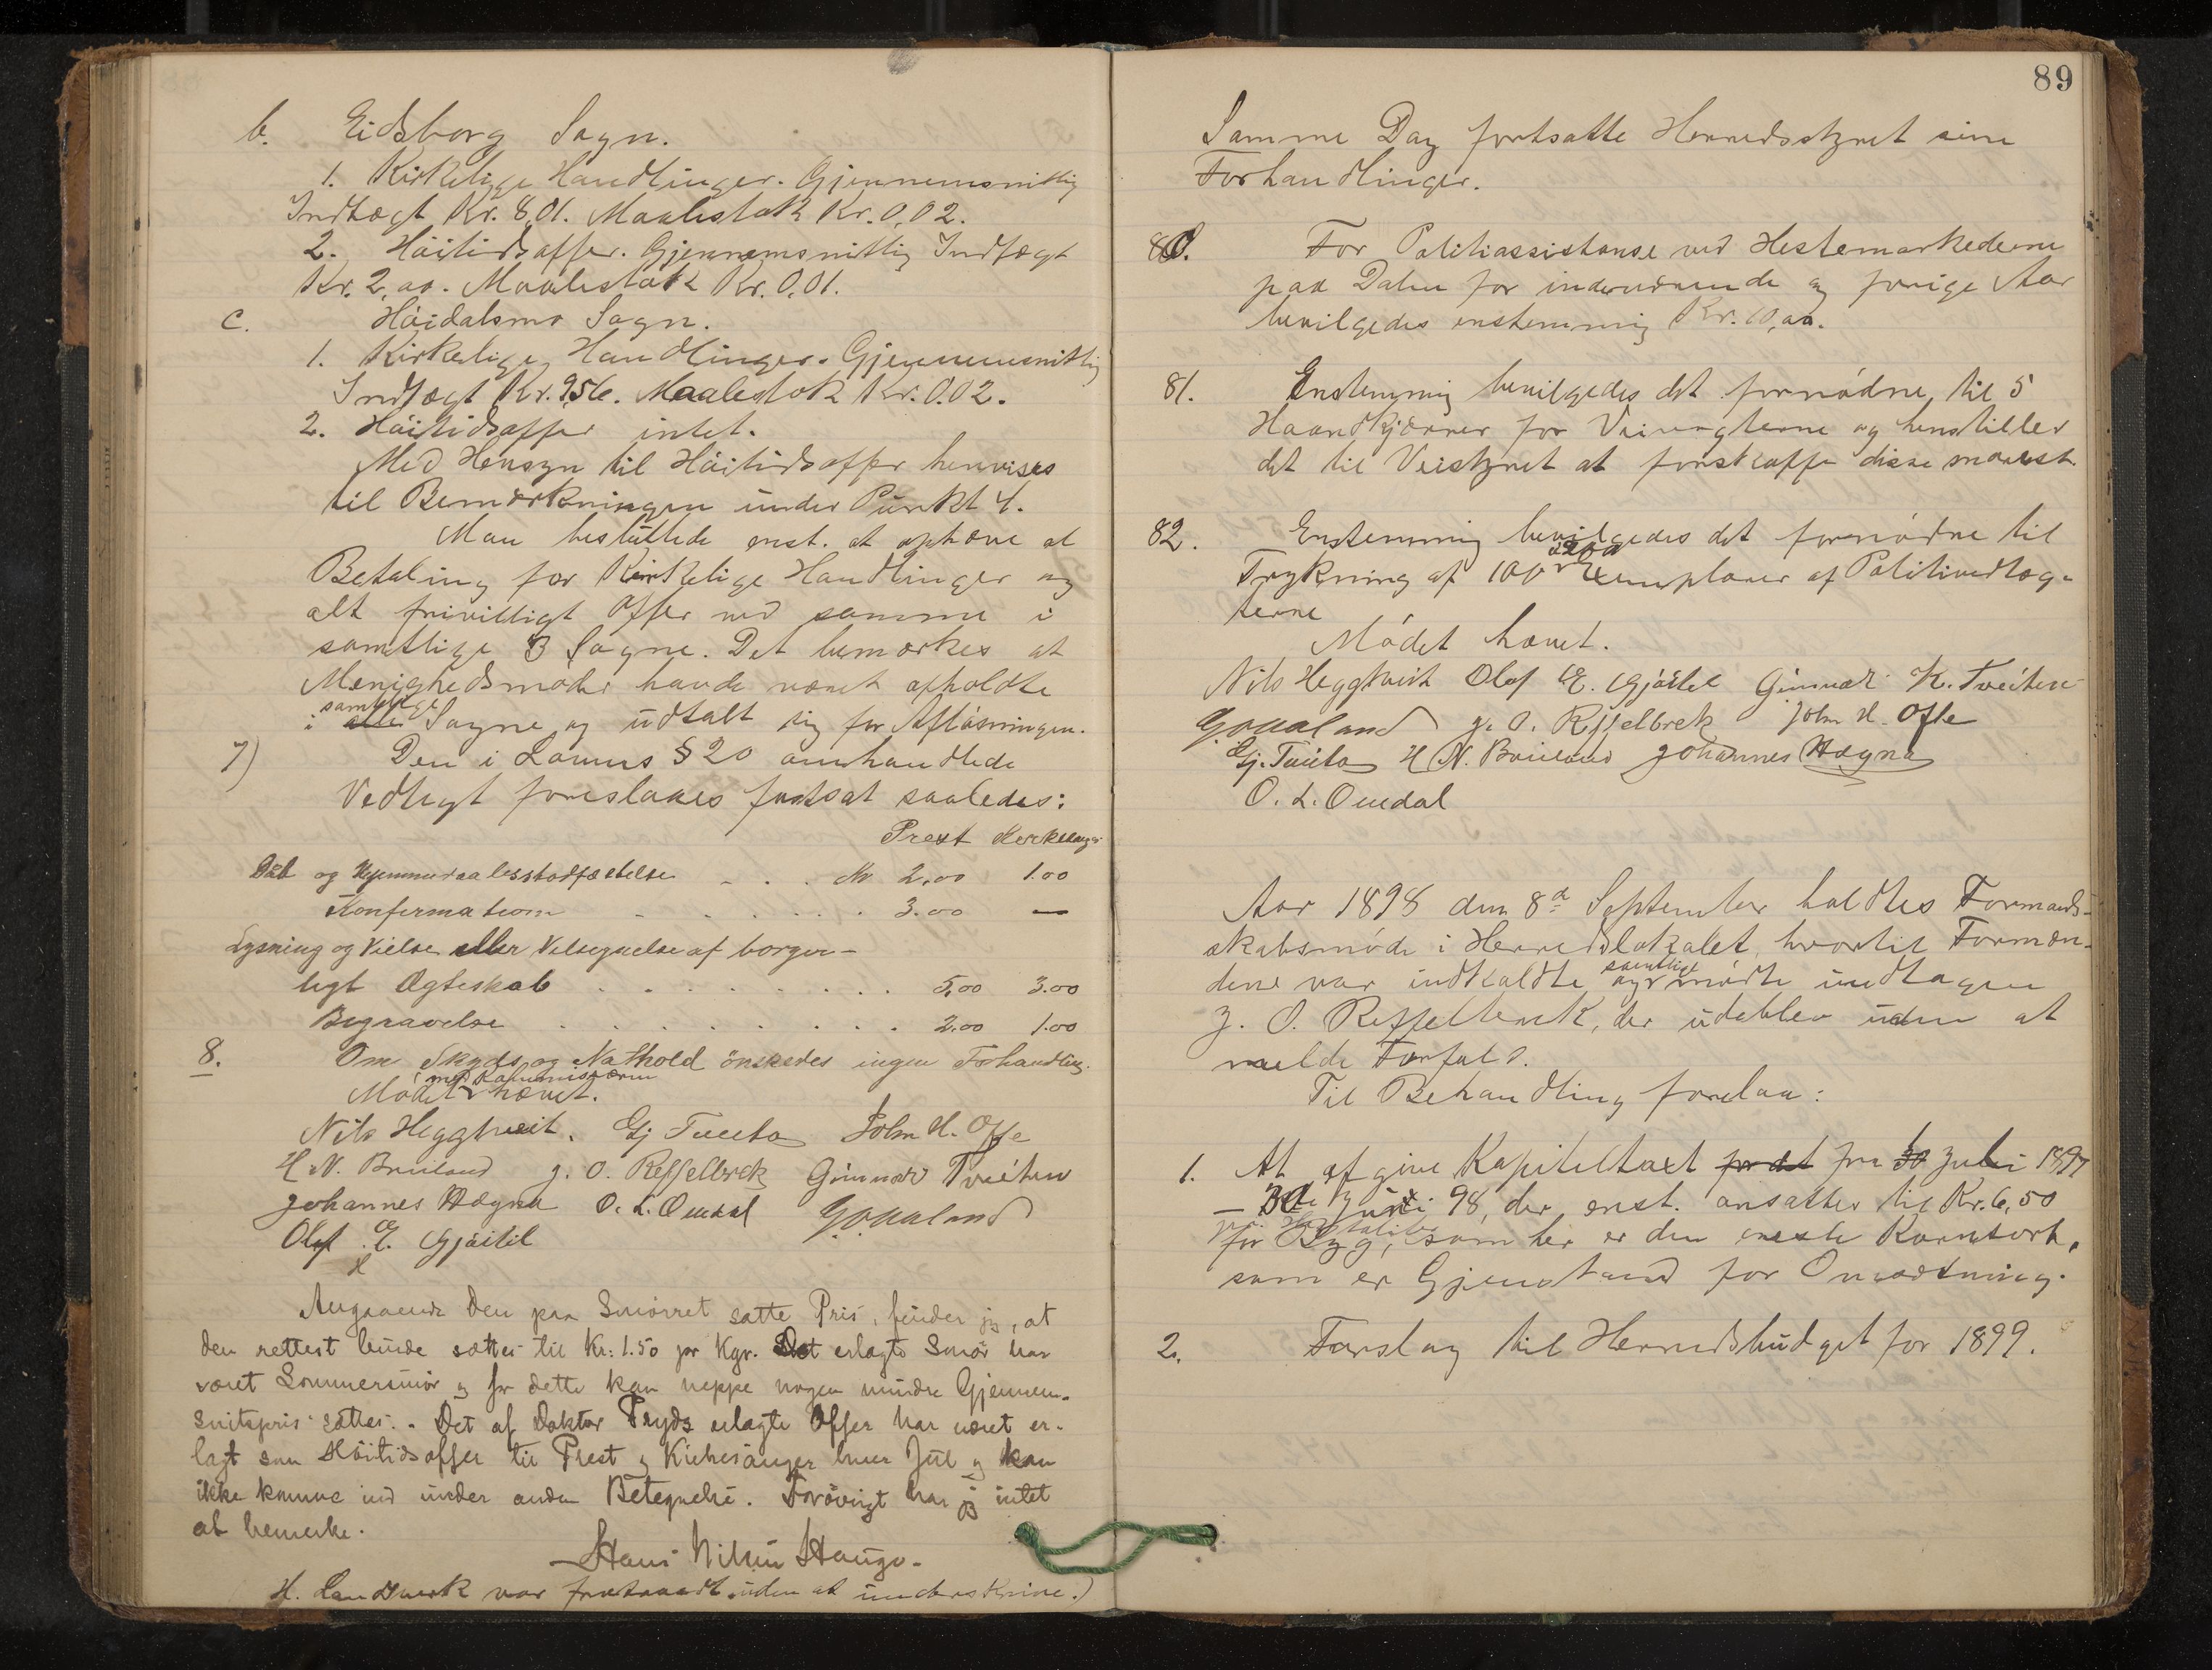 b. Eidsborg Sogn.
1. Kirkelige Handlinger. Gjennemsnitlig
Indtægt Kr. 8,01. Maalestok Kr. 0,02.
2. Høitidsoffer. Gjennemsnitlig Indtægt
Kr. 2,00. Maalestok Kr. 0,01.
c. Høidalsmo Sogn.
1. Kirkelige Handlinger. Gjennemsnitlig
Indtægt Kr. 9,56. Maalestok Kr. 0.02.
2. Høitidsoffer intet.
Med Hensyn til Høitidsoffer henvises
til Bemærkningen under Punkt 4.
Man besluttede enst. at ophæve al
Betaling for Kirkelige Handlinger og
alt frivilligt Offer ved samme i
samtlige 3 Sogne. Det bemærkes at
Menighedsmøder havde været afholdte
i alle samtlige Sogne og udtalt sig for Afløsningen.
7) Den i Lovens § 20 omhandlede
Vedtægt foreslaaes fastsat saaledes:
Prest Kirkesanger
Daab og Hjemmedaabsstadfæstelse . . . Kr 2.00 1.00
Konfirmation . . . . . . 3.00 —
Lysning og Vielse eller Velsignelse af borger-
ligt Ægteskab . . . . . . . . 5,00 3.00
Begravelse . . . . . . . . . 2.00 1.00
8. Om Skyds og Nathold ønskedes ingen Forhandling.
Mødet med Kommissæren hævet.
Nils Heggtveit. Gj Tveito John H. Ofte
H. N. Brieland J. O. Reffelbrek Gunnar Tveiten
Johannes Hægna O. L. Omdal G. O. Haaland
Olef E. Gjøitil
Angaaende den paa Smørret satte Pris, finder jeg, at
den rettest burde sættes til Kr: 1.50 pr Kgr. Det erlagte Smør har
været Sommersmør og for dette kan neppe nogen mindre Gjennem-
snitspris sættes. - Det af Doktor Pryds erlagte Offer har været er-
lagt som Høitidsoffer til Prest og Kirkesanger hver Jul og kan
ikke komme ind under anden Betegnelse. Forøvrigt har jeg intet
at bemerke.
Hans Nilsen Hauge.
H. Landsverk var fratraadt uden at underskrive.)
89
Samme Dag fortsatte Herredsstyret sine
Forhandlinger.
80. For Politiassistanse ved Hestemarkederne
paa Dalen for indeværende og forrige Aar
bevilgedes enstemmig Kr. 10,00.
81. Enstemmig bevilgedes det fornødne til 5
Haandkjærrer for Veivogterne og henstilles
det til Veistyret at forskaffe disse snarest.
82. Enstemmig bevilgedes det fornødne til
Trykning af 100 Exemplarer af Politivedtæg-
terne
Mødet hævet.
Nils Heggtveit Olef E. Gjøitil Gunnar K. Tveiten
G. O. Haaland J. O. Reffelbrek John H. Ofte
Gj. Tveito H N. Brieland Johannes Hægna
O. L. Omdal
Aar 1898 den 8de September holdtes Formand-
skabsmøde i Herredslokalet, hvortil Formæn-
dene var indkaldte og samtlige mødte undtagen
J. O. Reffelbrek, der udeblev uden at
melde Forfald.
Til Behandling forelaa:
1. At afgive Kapiteltaxt for det fra 1 Juli 1897
— 30te Juni 98, der enst. ansattes til Kr. 6,50
pr. Hektoliter for Byg, som her er den eneste Kornsort,
som er Gjenstand for Omsætning.
2. Forslag til Herredsbudget for 1899.